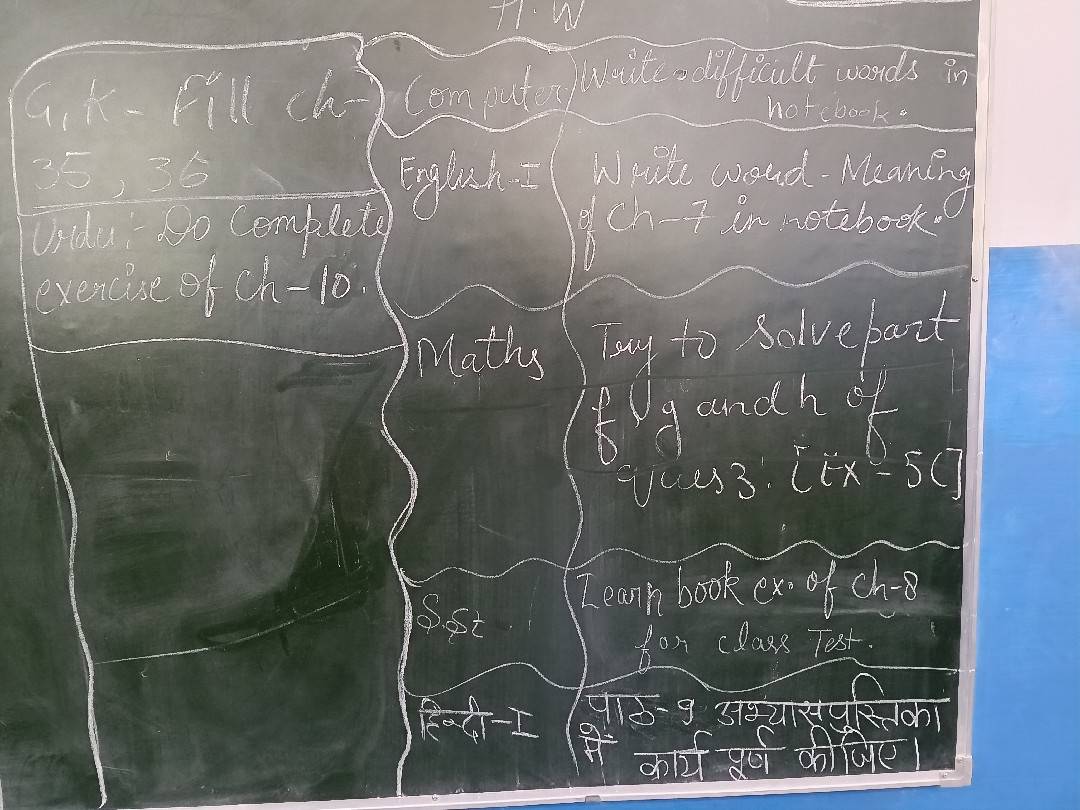 H.W
G.K - Fill ch-
35, 36
Urdu:- Do Complete
exercise of Ch-10.
Computer
Write difficult words in
notebook.
English-I
Write word-Meaning
of Ch-7 in notebook.
Maths
Try to solve part
f, g and h of
ques 3. [Ex-5C]
S.St
Learn book ex. of Ch-8
for class Test.
हिन्दी-I
पाठ-9 अभ्यासपुस्तिका
में कार्य पूर्ण कीजिए।